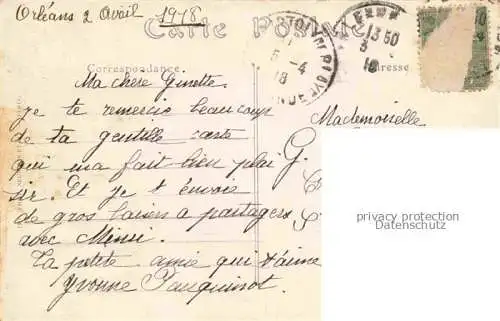 Orléans 2 Avril 1918
Carte Postale
Correspondance
Adresse
13 50
3 -
18
5 - 4
18
Ma chère Ginette
Je te remercie beaucoup
de ta gentille carte
qui m'a fait bien plai
sir. Et je t'envoie
de gros baisers a partager
avec Mimi.
Ta petite amie qui t'aime
Yvonne
Mademoiselle
G.
privacy protection
Datenschutz